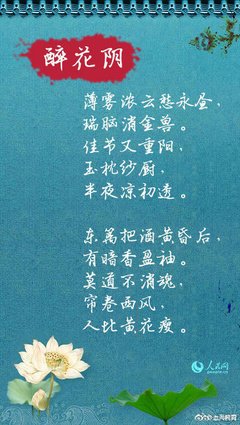 醉花阴
薄雾浓云愁永昼，
瑞脑消金兽。
佳节又重阳，
玉枕纱厨，
半夜凉初透。
东篱把酒黄昏后，
有暗香盈袖。
莫道不消魂，
帘卷西风，
人比黄花瘦。
人民网